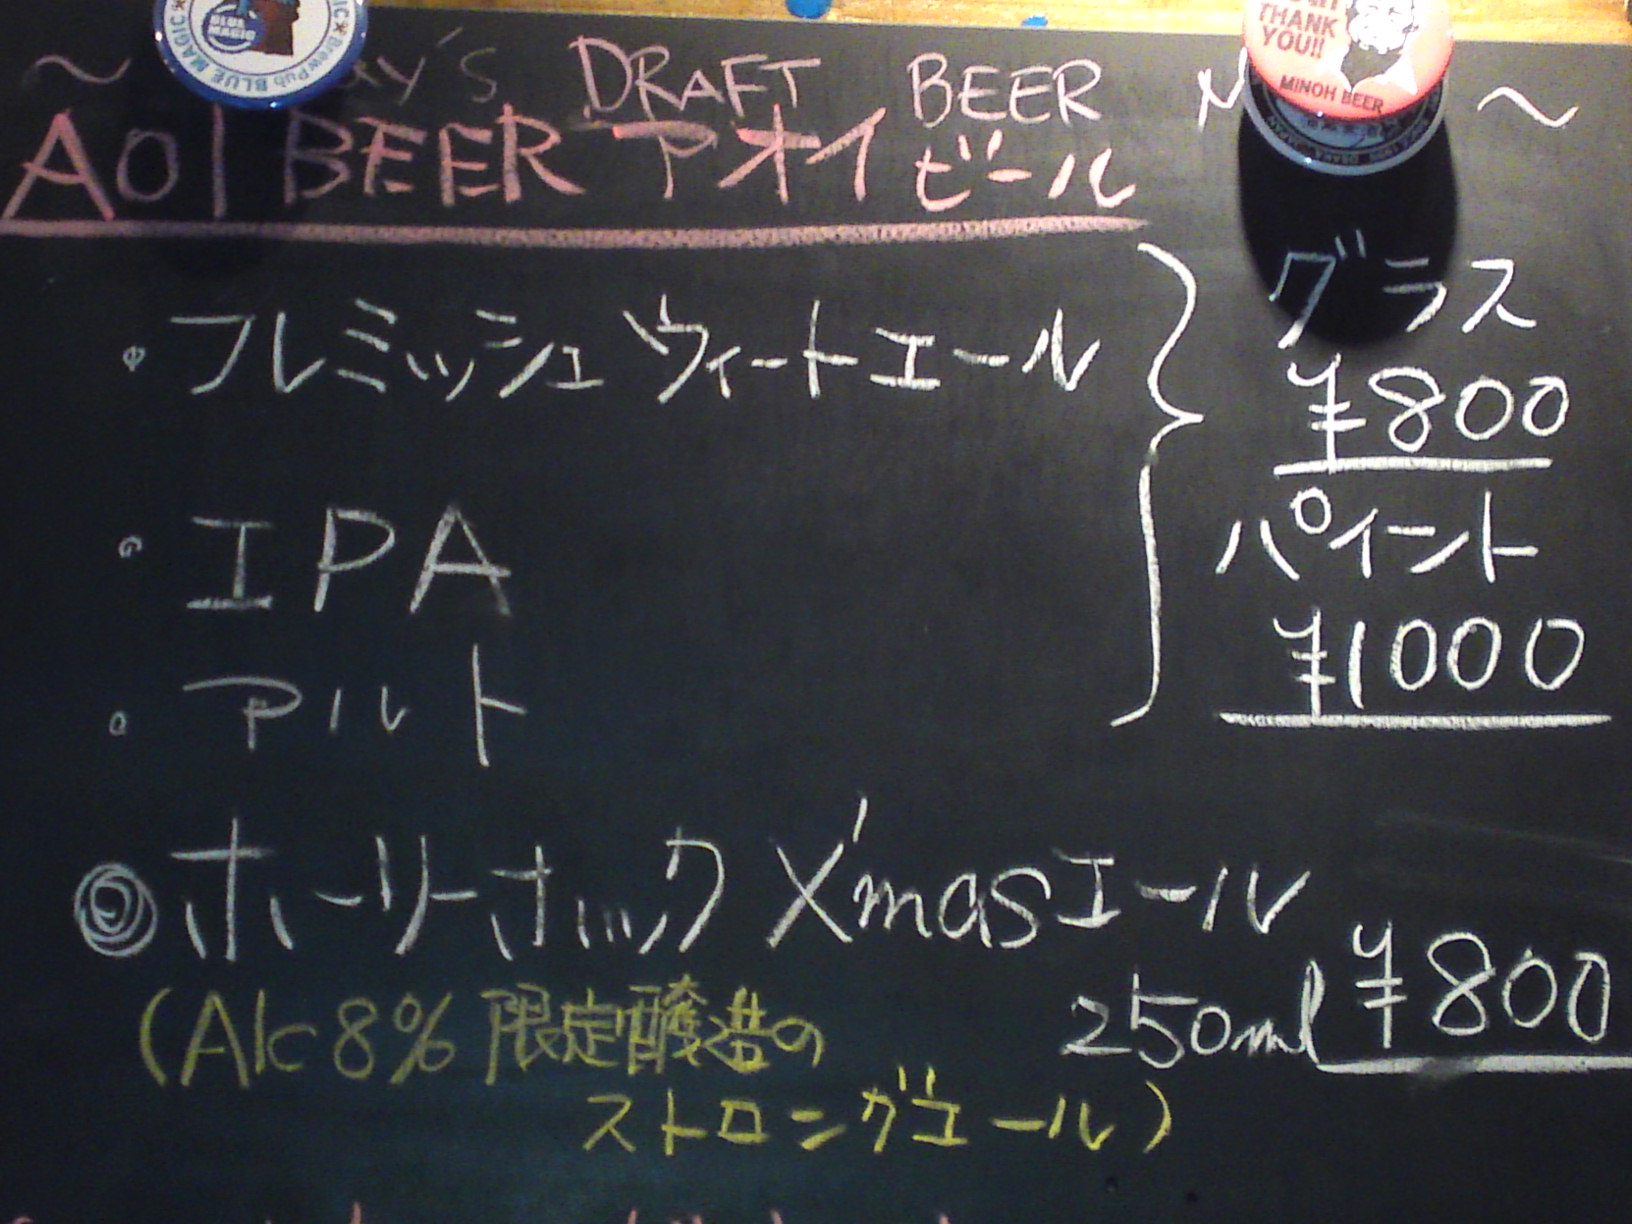 BLUE MAGIC
BrewPub BLUE MAGIC
THANK
YOU!!
MINOH BEER
～ 's DRAFT BEER ～
AOI BEER アオイビール
・フレミッシュ ウィートエール
グラス
¥800
・IPA
パイント
¥1000
・アルト
◎ホーリーホック X'masエール
250ml ¥800
(Alc 8% 限定醸造の
ストロングエール)